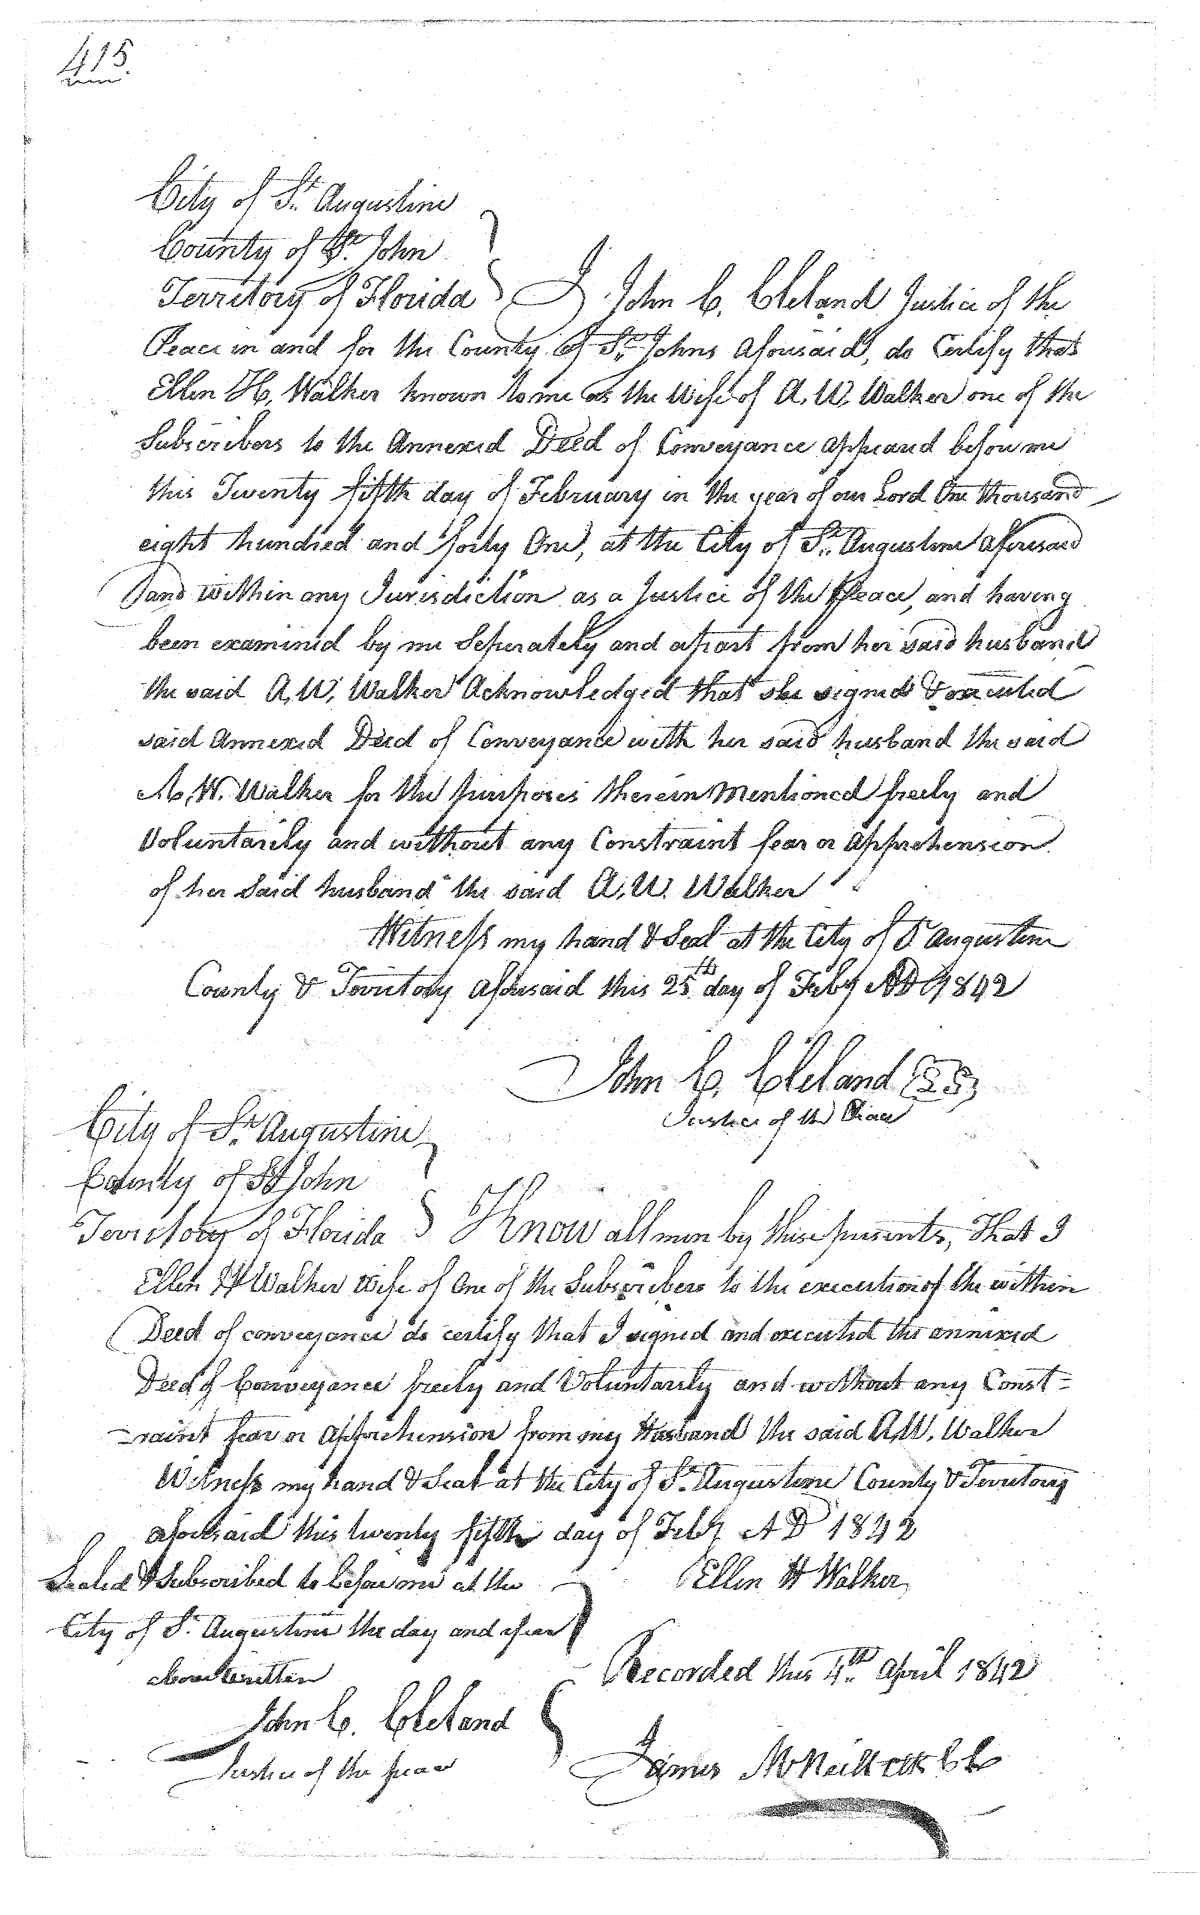 415.
City of St. Augustine
County of St. John
Territory of Florida } I John C. Cleland Justice of the
Peace in and for the County of St. Johns aforesaid, do Certify that
Ellen H, Walker known to me as the Wife of A. W. Walker one of the
Subscribers to the Annexed Deed of Conveyance appeared before me
this Twenty fifth day of February in the year of our Lord One thousand
eight hundred and forty One, at the City of St. Augustine aforesaid
and within any Jurisdiction as a Justice of the Peace, and having
been examined by me Seperately and apart from her said husband
the said A. W. Walker Acknowledged that she signed & executed
said Annexed Deed of Conveyance with her said husband the said
A. W. Walker for the purposes therein Mentioned freely and
Voluntarily and without any Constraint fear or apprehension
of her Said husband the said A. W. Walker
Witness my hand & Seal at the City of St Augustine
County & Territory aforesaid this 25th day of Feby AD 1842
John C. Cleland
Justice of the Peace
City of St. Augustine
County of St John
Territory of Florida } Know all men by these presents, That I
Ellen H Walker Wife of One of the Subscribers to the execution of the within
Deed of conveyance do certify that I signed and executed the annexed
Deed of Conveyance freely and Voluntarily and without any Const=
=raint fear or apprehension from my Husband the said A. W. Walker
Witness my hand & Seal at the City of St. Augustine County & Territory
aforesaid this twenty fifth day of Feby AD 1842
Sealed & Subscribed to before me at the
Ellen H Walker
City of St. Augustine the day and year
above written
Recorded this 4th April 1842
John C. Cleland
Justice of the peace
James McNeill Clk